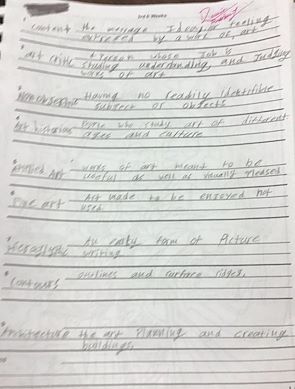 content the message Idea, or Feeling
expressed by a work of art
Art critic a Person whose Job is
studing understanding, and Judging
works of art
Nonobjective Having no readily identifible
subject or objects
Art historians People who study art of different
ages and culture
Applied Art works of art meant to be
useful as well as visually pleased
Fine art Art made to be enjoyed not
used
Hieroglyphic An early form of Picture
writing
Contours outlines and surface ridges.
Architecture the art Planning and creating
buildings.